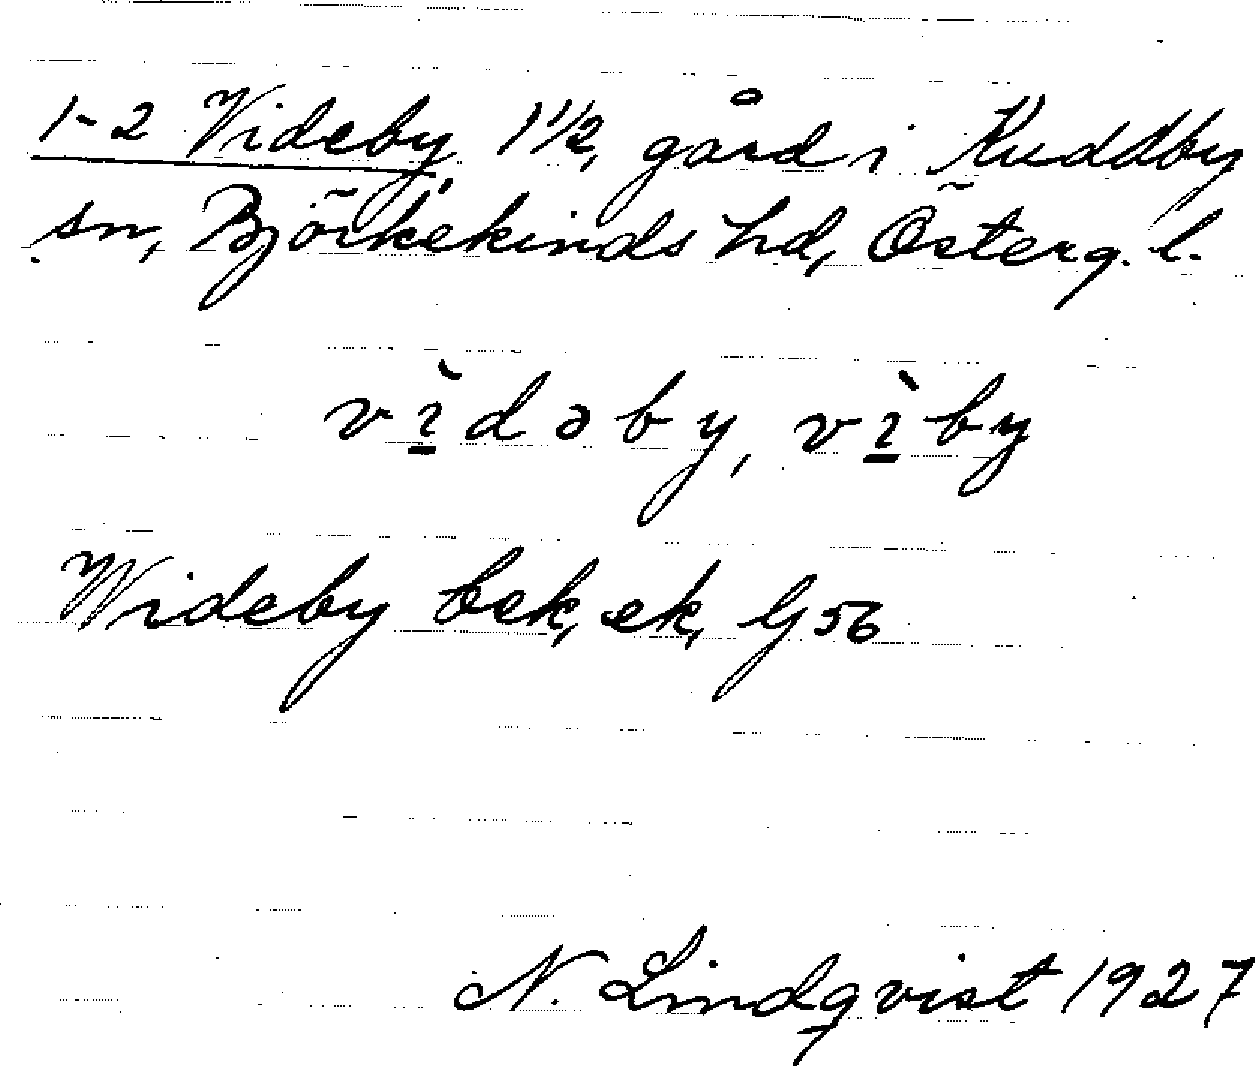 1-2 Videby, 1 1/2, gård i Kuddby
sn, Björkekinds hd, Österg. l.
vı̲̀dəby, vı̲̀by
Wideby bek, ek, G 56
N. Lindqvist 1927